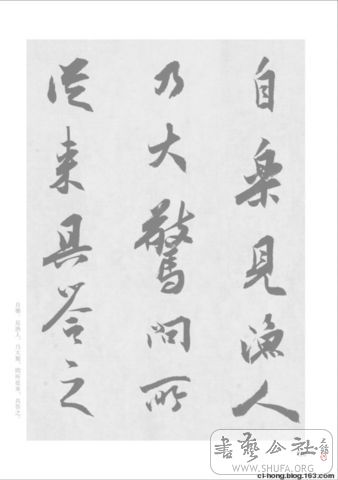 自樂見漁人
乃大驚問所
從来具答之
自樂。見漁人，乃大驚，問所從來。具答之。
書藝公社
WWW.SHUFA.ORG
ci-hong.blog.163.com